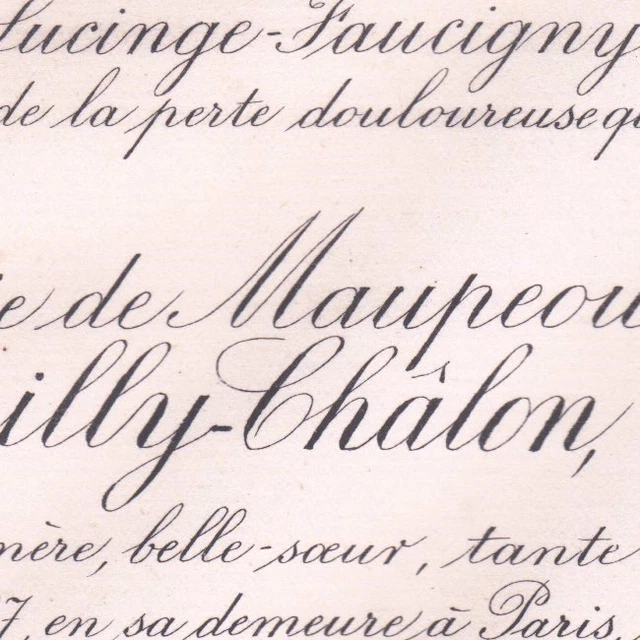 Lucinge-Faucigny
de la perte douloureuse qu
ie de Maupeou
illy-Châlon,
mère, belle-sœur, tante
7, en sa demeure à Paris,